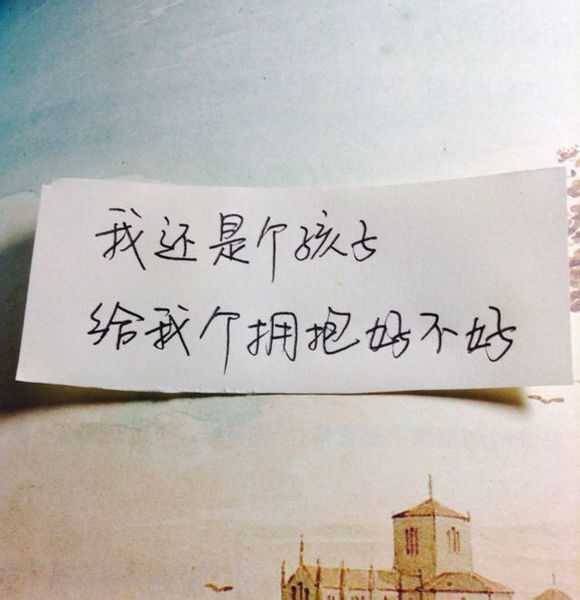 我还是个孩子
给我个拥抱好不好